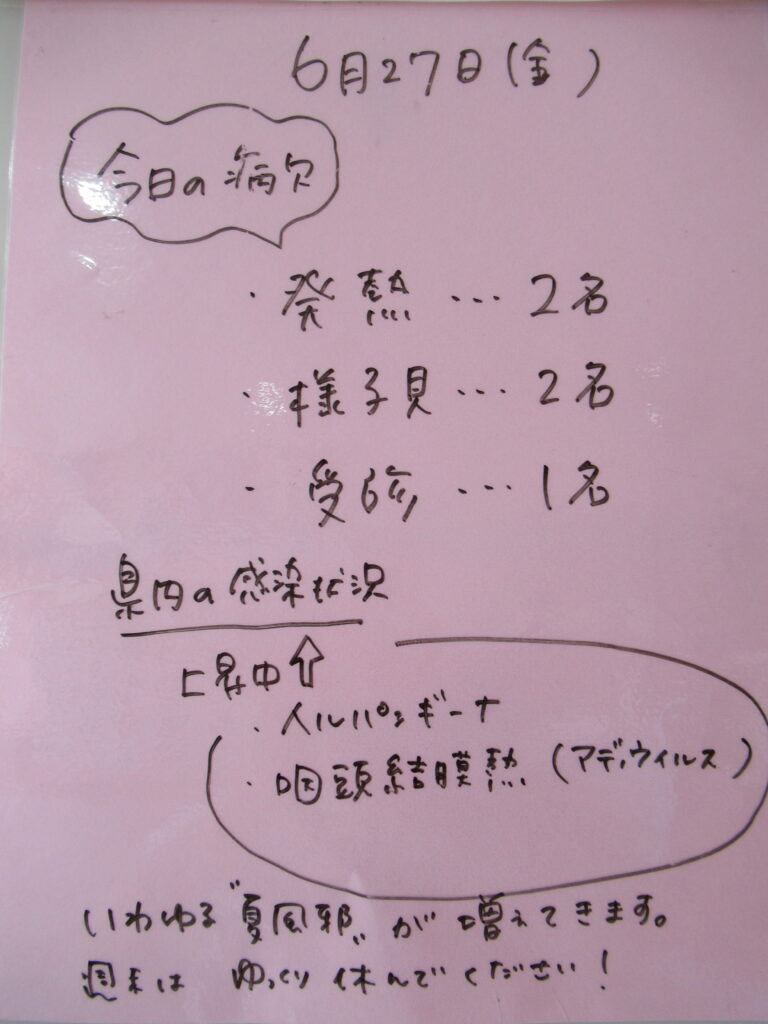 6月27日(金)
今日の病欠
・発熱…2名
・様子見…2名
・受診…1名
県内の感染状況
上昇中⇧
・ヘルパンギーナ
・咽頭結膜熱(アデノウィルス)
いわゆる"夏風邪"が増えてきます。
週末はゆっくり休んでください!